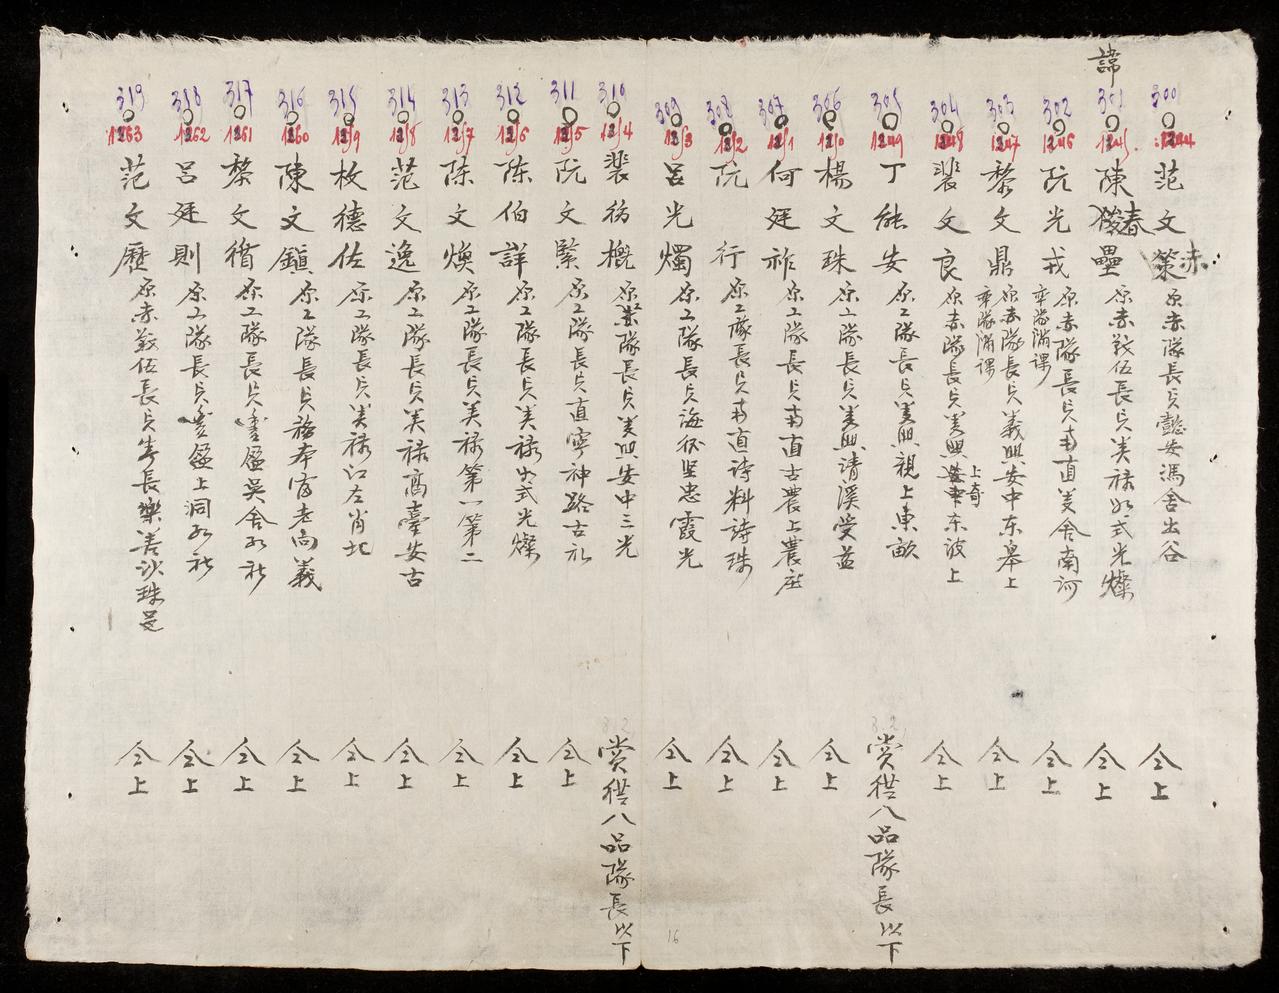 諱
300
1244
范文策赤原赤隊長貞懿安馮舍出谷
仝上
301
1245
陳春壘原赤義伍長貞美禄如式光燦
仝上
302
1246
阮光戎原赤隊長貞南直美舍南河
率隊備課
仝上
303
1247
黎文鼎原赤隊長貞義興安中东皋上
率隊備課
仝上
304
1248
裴文良原赤隊長貞美興东波上
上奇
仝上
305
1249
丁能安原工隊長貞美興親上東畝
賞從八品隊長以下
306
1250
楊文珠原工隊長貞美興清溪受益
仝上
307
1251
何廷祚原工隊長貞南直古農上農座
仝上
308
1252
阮行原工隊長貞南直詩料詩珠
仝上
309
1253
呂光燭原工隊長貞海後坚忠霞光
仝上
310
1254
裴初概原隊長貞美興安中三光
賞從八品隊長以下
311
1255
阮文緊原工隊長貞直寧神路古礼
仝上
312
1256
陈伯詳原工隊長貞美禄如式光燦
仝上
313
1257
陈文煥原工隊長貞美禄第一第二
仝上
314
1258
范文逸原工隊長貞美禄高臺安古
仝上
315
1259
枚德佐原工隊長貞美禄江左肖北
仝上
316
1260
陳文鎮原工隊長貞務本富老向義
仝上
317
1261
黎文循原工隊長貞豐盈吳舍社
仝上
318
1262
呂廷則原工隊長貞豐盈上洞社
仝上
319
1263
范文歷原赤義伍長貞春長樂善沙珠
仝上
16